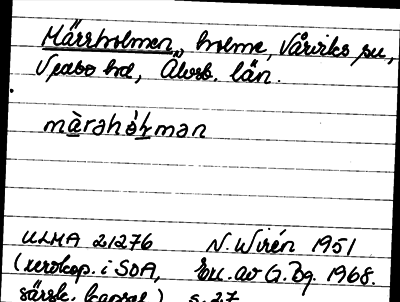 Märrholmen, holme, Vårviks sn,
Vedbo hd, Älvsb. län.
màrahòḷman
ULMA 21276 N. Wirén 1951
(xerokop. i SOA, Exc. av G. Bg. 1968.
särsk. kapsel) s. 27